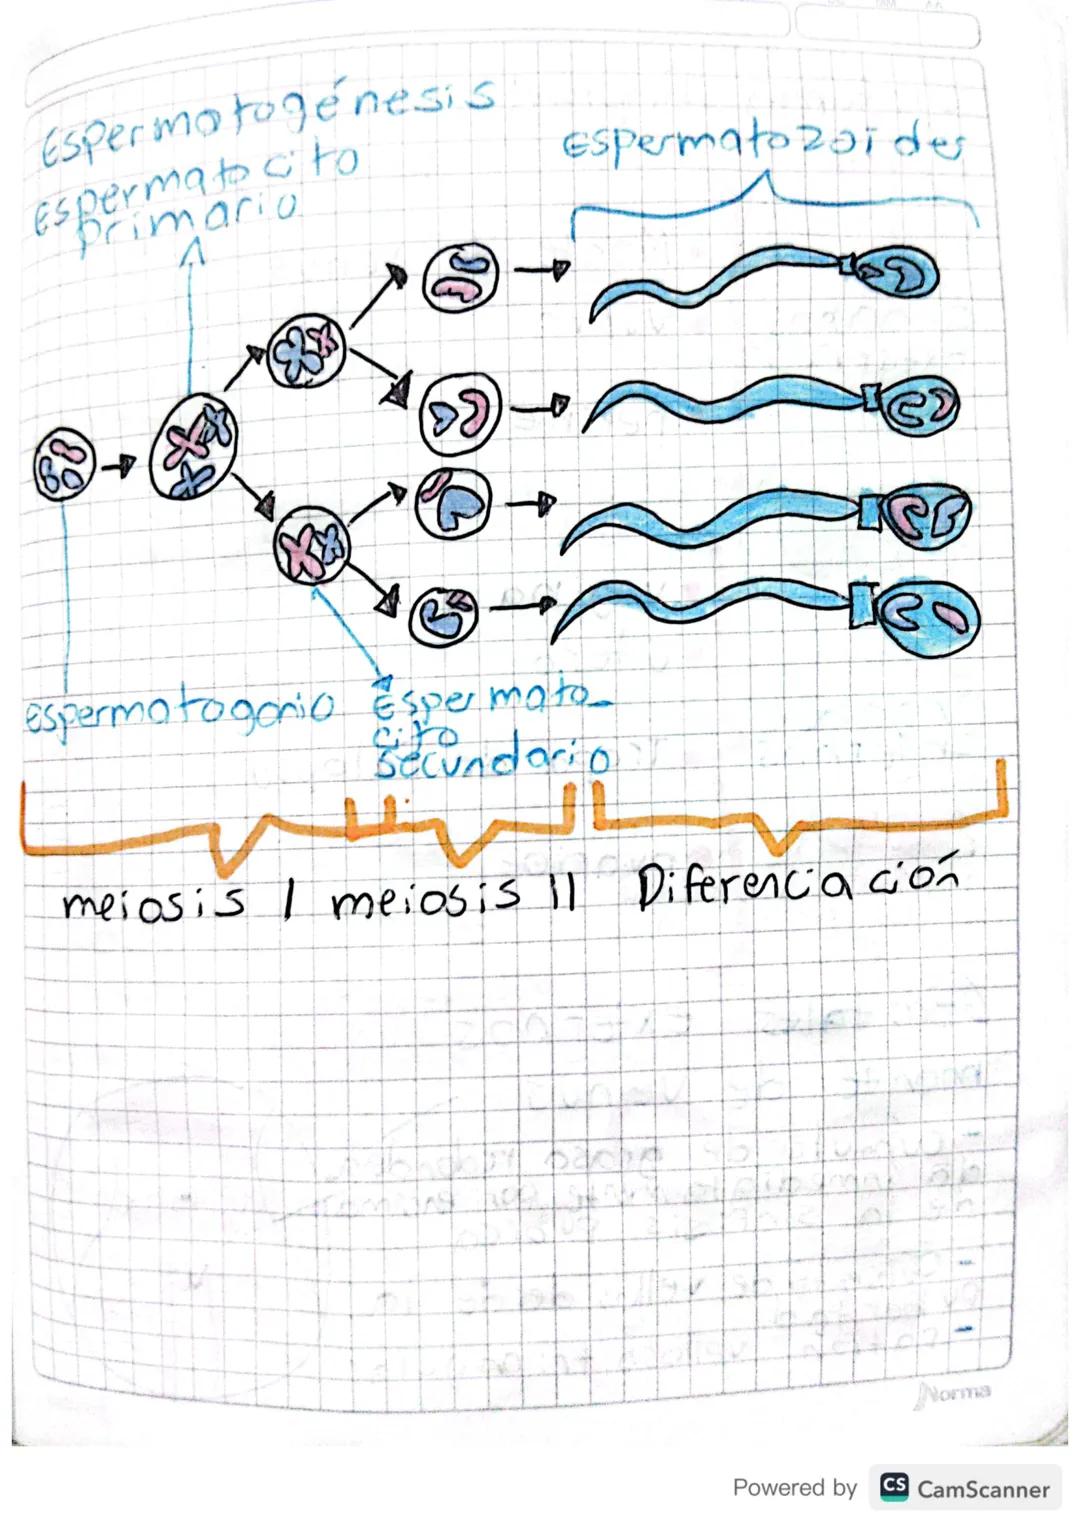 Espermatogénesis
Espermatozoides
espermatocito
primario
espermatogonio
Espermato-
cito
secundario
meiosis I meiosis II Diferenciación
Norma
Powered by CS CamScanner